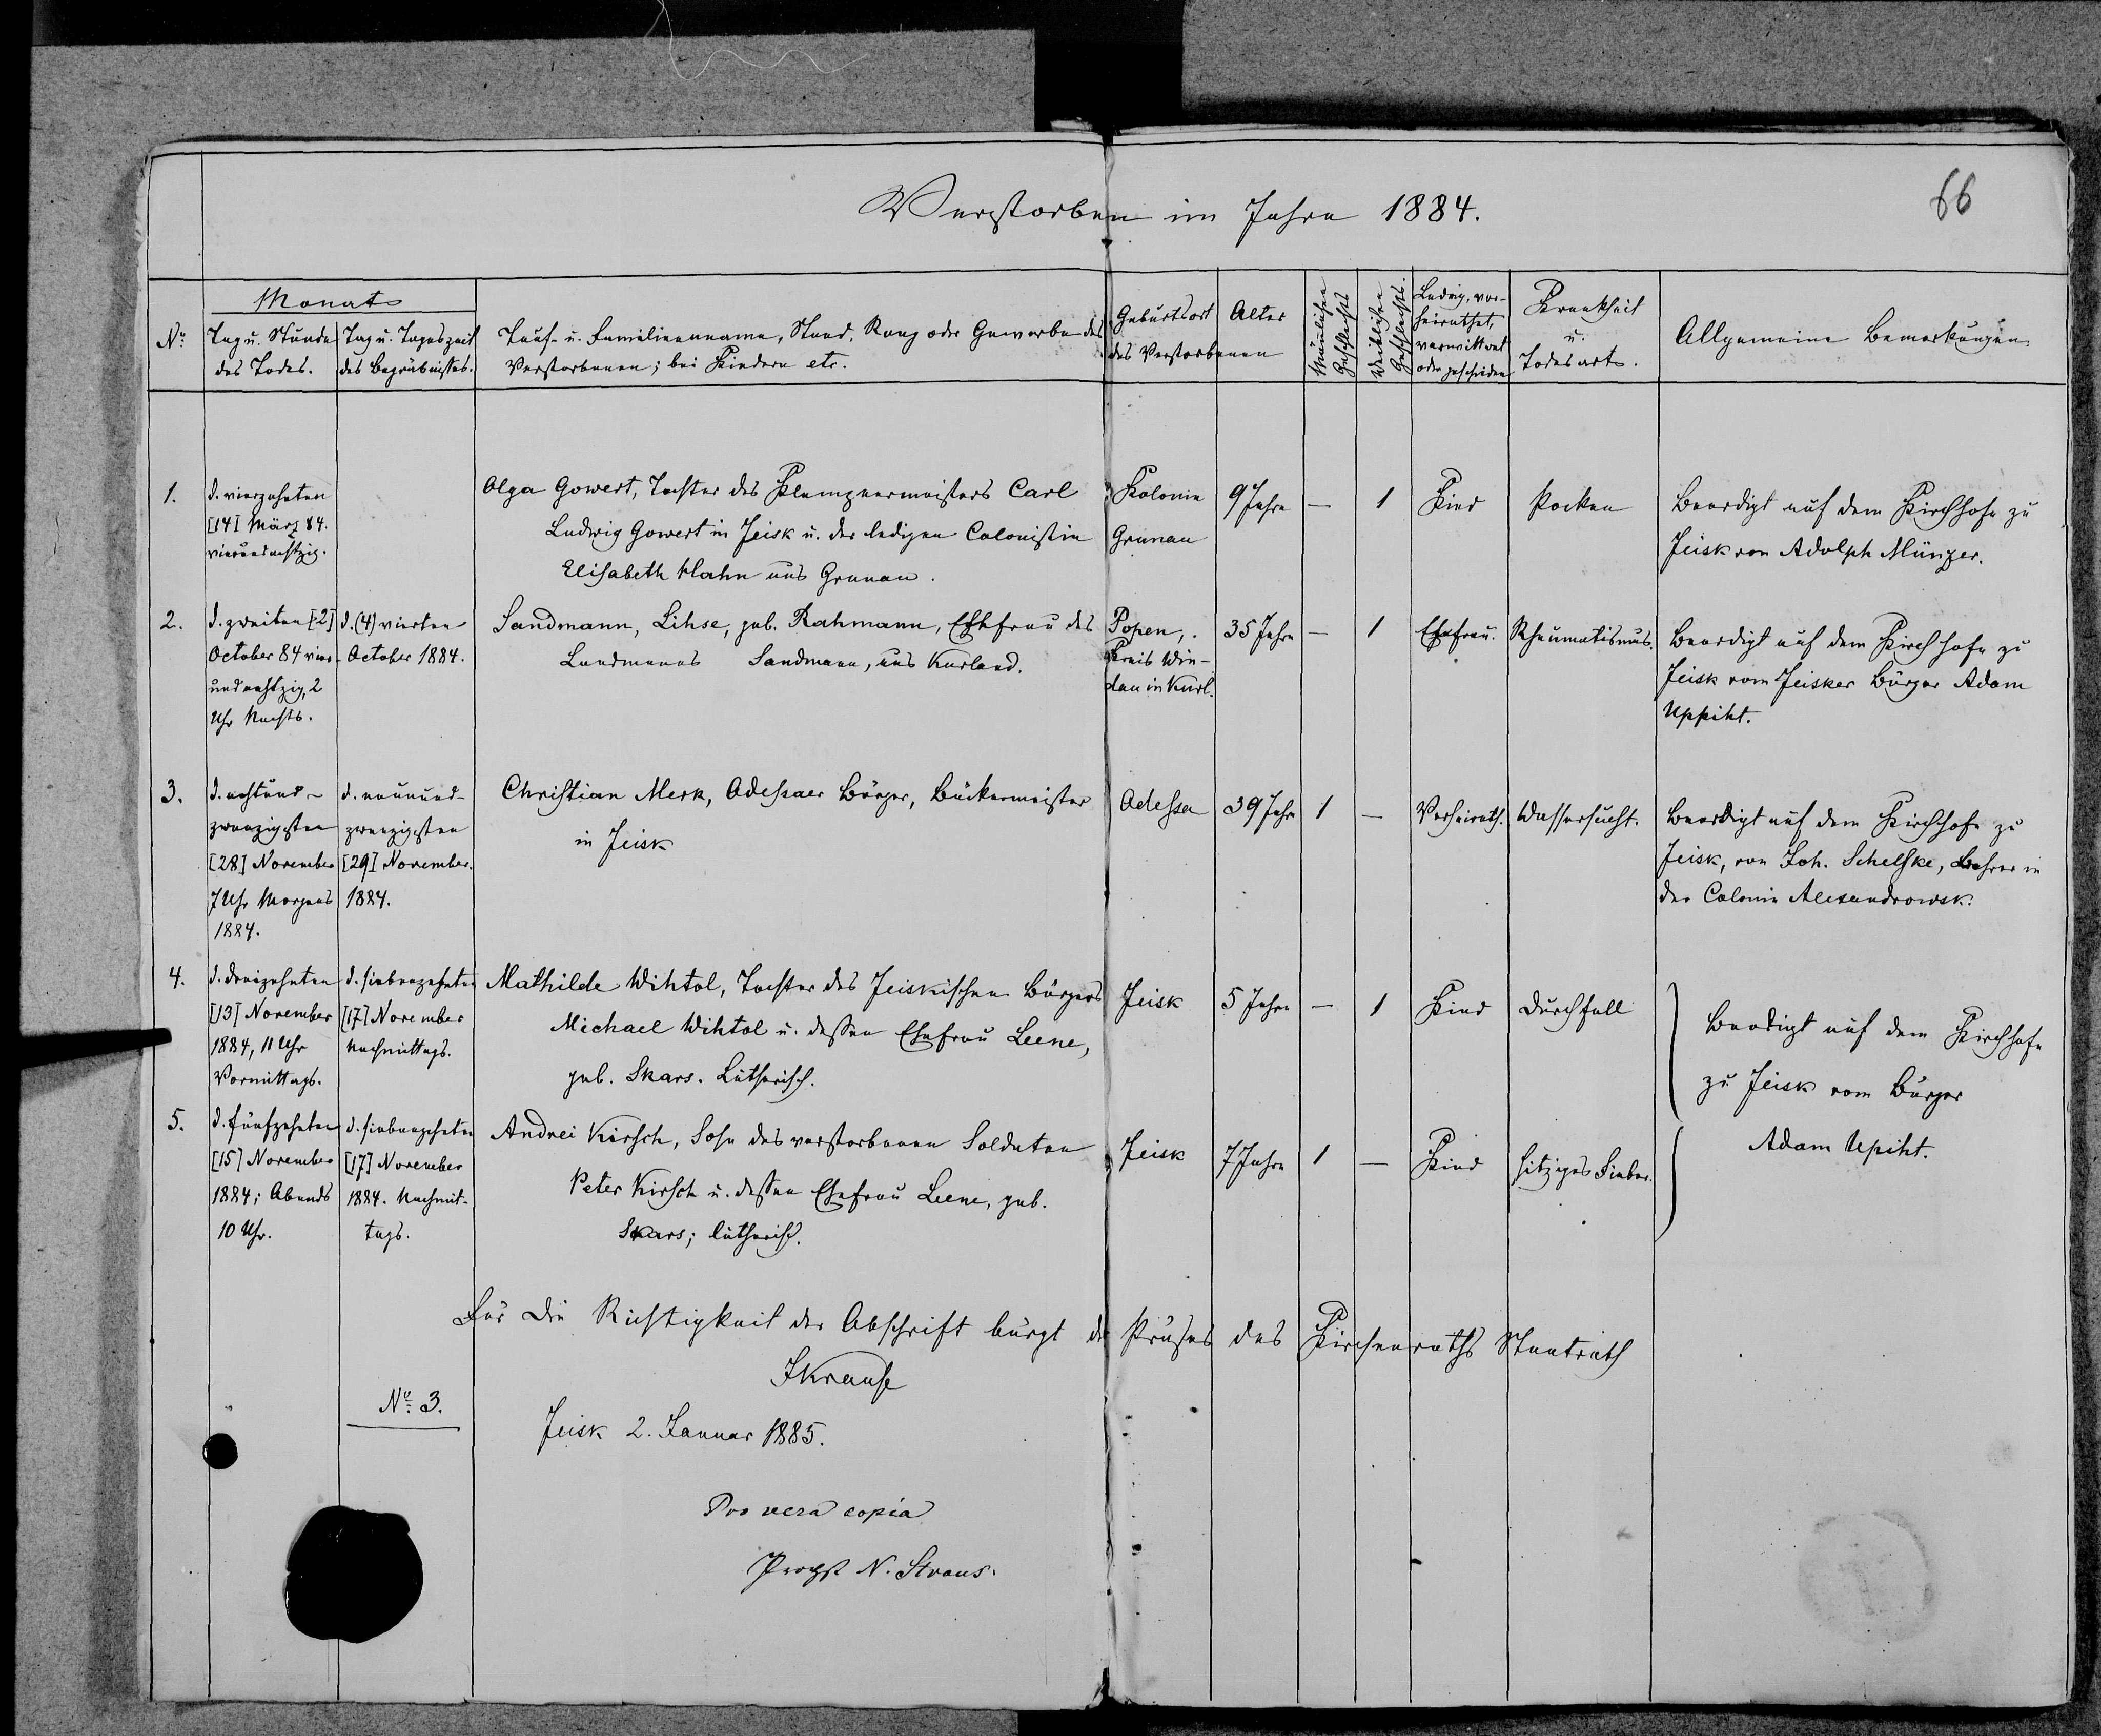 Verstorben im Jahre 1884.
66
Monat
No.
Tag u. Stunde des Todes.
Tag u. Tageszeit des Begräbnisses.
Tauf- u. Familienname, Stand, Rang oder Gewerbe des
Verstorbenen; bei Kindern etc.
Geburtsort
Alter
des Verstorbenen
Männlichen Geschlechts
Weiblichen Geschlechts
Ledig, ver-
heirathet,
verwittwet
oder geschieden
Krankheit
u.
Todesart.
Allgemeine Bemerkungen
1.
d. vierzehnten
[14] März 84.
vierundachtzig.
Olga Gowert, Tochter des Klempnermeisters Carl
Ludwig Gowert in Jeisk u. der ledigen Colonistin
Elisabeth Hahn aus Grunau.
Kolonie
Grunau
9 Jahre
—
1
Kind
Pocken
Beerdigt auf dem Kirchhofe zu
Jeisk von Adolph Münzer.
2.
d. zweiten [2]
October 84 vier-
undachtzig, 2
Uhr Nachts.
d. (4) vierten
October 1884.
Sandmann, Lihse, geb. Rahmann, Ehefrau des
Landmanns Sandmann, aus Kurland.
Popen,
Kreis Win-
dau in Kurl.
35 Jahre
—
1
Ehefrau.
Rheumatismus.
Beerdigt auf dem Kirchhofe zu
Jeisk vom Jeisker Bürger Adam
Uppiht.
3.
d. achtund-
zwanzigsten
[28] November
7 Uhr Morgens
1884.
d. neunund-
zwanzigsten
[29] November.
1884.
Christian Merk, Odessaer Bürger, Bäckermeister
in Jeisk
Odessa
39 Jahre
1
—
Verheirath.
Wassersucht.
Beerdigt auf dem Kirchhofe zu
Jeisk, von Joh. Schelske, Lehrer in
der Colonie Alexandrowsk.
4.
d. dreizehnten
[13] November
1884, 11 Uhr
Vormittags.
d. siebenzehnten
[17] November
Nachmittags.
Mathilde Wihtol, Tochter des Jeiskischen Bürgers
Michael Wihtol u. dessen Ehefrau Leene,
geb. Skars. Lutherisch.
Jeisk
5 Jahre
—
1
Kind
Durchfall
Beerdigt auf dem Kirchhofe
zu Jeisk vom Bürger
Adam Upiht.
5.
d. fünfzehnten
[15] November
1884; Abends
10 Uhr.
d. siebenzehnten
[17] November
1884. Nachmit-
tags.
Andrei Kirsch, Sohn des verstorbenen Soldaten
Peter Kirsch u. dessen Ehefrau Leene, geb.
Skars; lutherisch.
Jeisk
7 Jahre
1
—
Kind
hitziges Fieber.
Für die Richtigkeit der Abschrift bürgt der Präses des Kirchenraths Staatsrath
JKrause
No. 3.
Jeisk 2. Januar 1885.
Pro vera copia
Propst N. Straus.